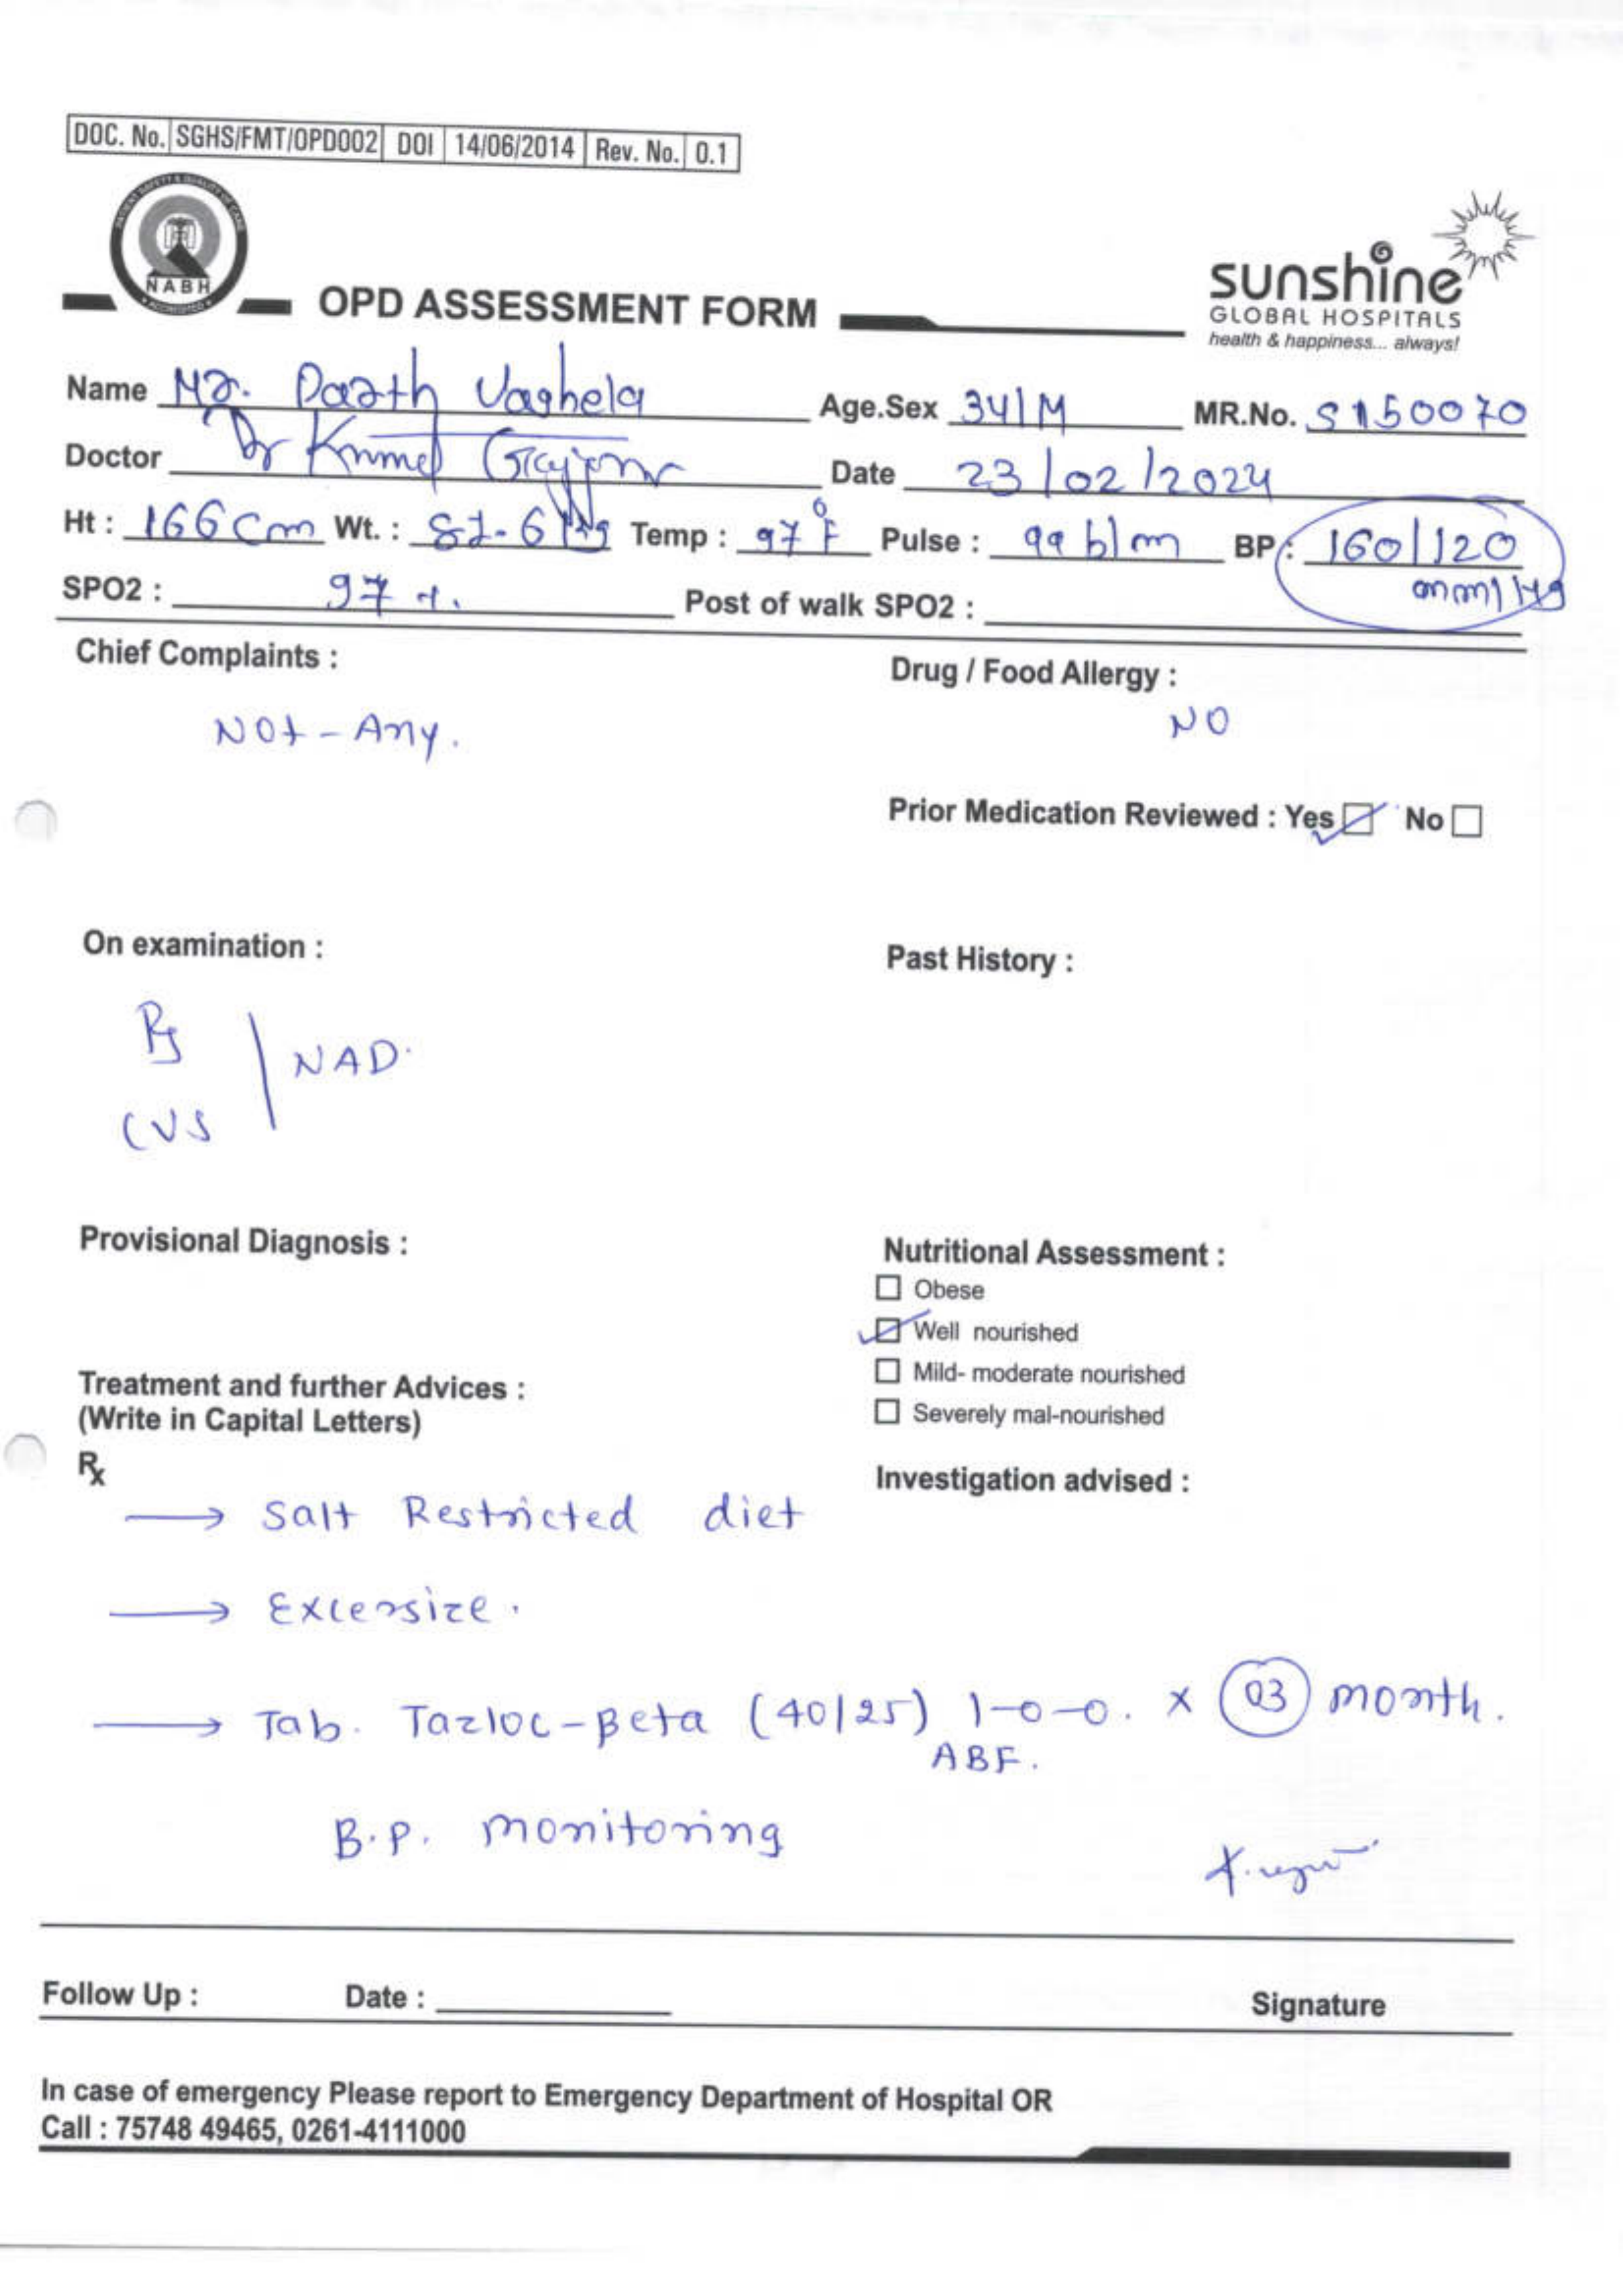 DOC. No. SGHS/FMT/OPD002 DOI 14/06/2014 Rev. No. 0.1
PATIENT SAFETY & QUALITY OF CARE
NABH
ACCREDITED
OPD ASSESSMENT FORM
sunshine
GLOBAL HOSPITALS
health & happiness... always!
Name Mr. Parth Vaghela Age.Sex 34/M MR.No. S150070
Doctor Dr Date 23/02/2024
Ht : 166 Cm Wt. : Kg Temp : 97°F Pulse : 99 b/m BP : 160/120 mm/Hg
SPO2 : 97 %. Post of walk SPO2 :
Chief Complaints : Drug / Food Allergy :
Not-Any. NO
Prior Medication Reviewed : Yes No
On examination : Past History :
NAD.
CVS
Provisional Diagnosis : Nutritional Assessment :
Obese
Well nourished
Mild- moderate nourished
Severely mal-nourished
Treatment and further Advices :
(Write in Capital Letters)
Rx
Investigation advised :
→ Salt Restricted diet
→ Excersize.
→ Tab. Tazloc-Beta (40/25) 1-0-0. x 03 month.
ABF.
B.P. monitoring
Follow Up : Date : Signature
In case of emergency Please report to Emergency Department of Hospital OR
Call : 75748 49465, 0261-4111000